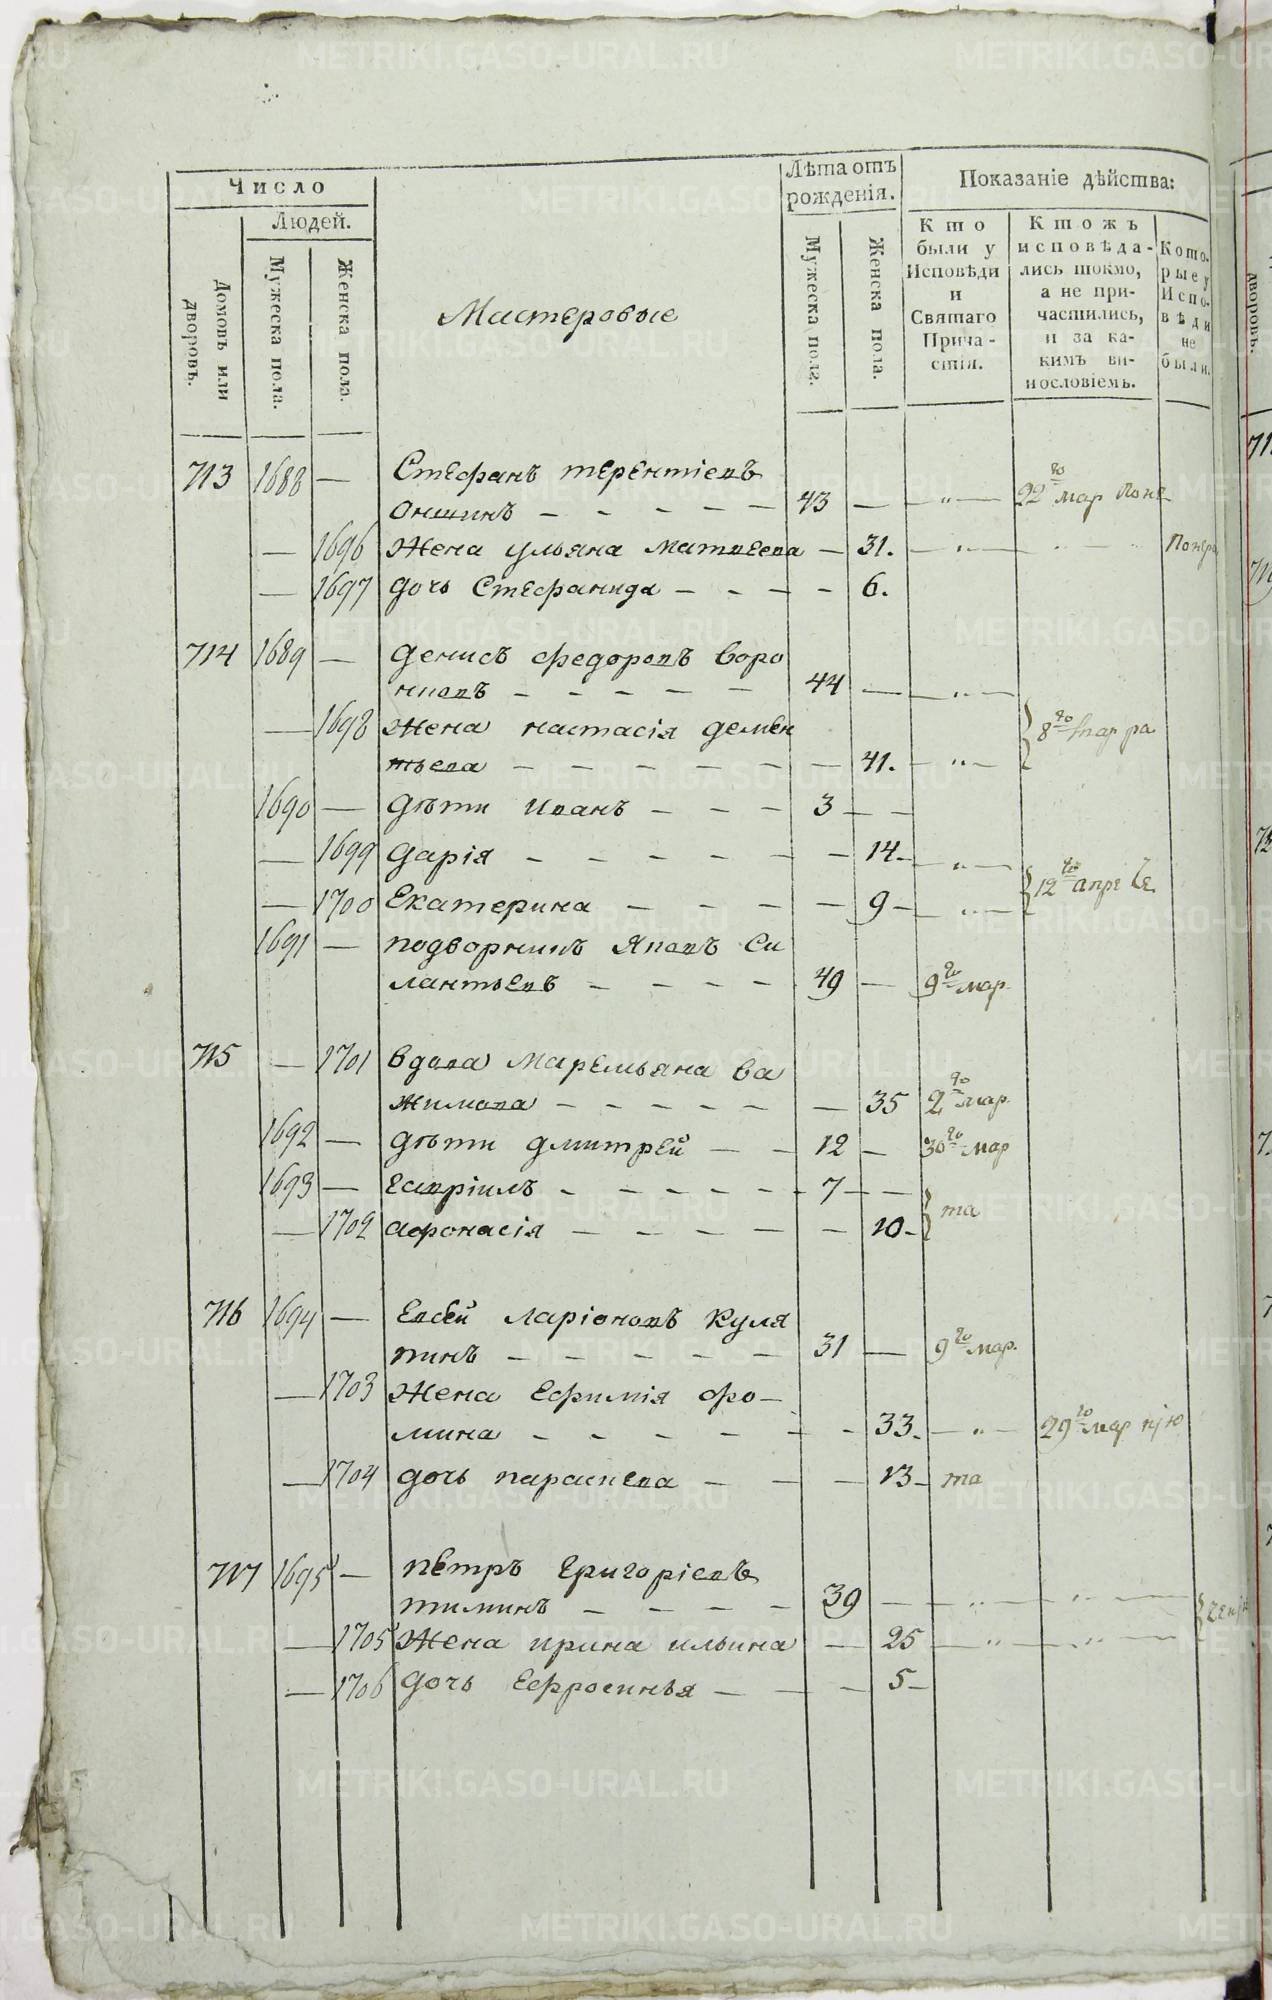 Число
Людей.
Домовъ или дворовъ.
Мужеска пола.
Женска пола.
Мастеровые
Лѣта отъ рожденія.
Мужеска пола.
Женска пола.
Показаніе дѣйства:
Кто были у Исповѣди и Святаго Причастія.
Ктожъ исповѣдались токмо, а не причастились, и за какимъ винословіемъ.
Которые у Исповѣди не были.
713 1688 — Стефанъ терентіевъ
Оншинъ — — — — — 43 — — „ — 22го мар
— 1696 Жена ульяна матвеева — 31. — „ —
— 1697 дочь Стефанида — — — — 6.
714 1689 — денисъ федоровъ воро
нковъ — — — — — 44 — — „ —
— 1698 Жена настасія демен
тьева — — — — — — 41. — „ — 8го
1690 — дѣти иванъ — — — 3 — —
— 1699 дарія — — — — — — 14. — „ —
— 1700 Екатерина — — — — — 9 — — „ — 12го апре
1691 — подворникъ Яковъ си
лантьевъ — — — — 49 — 9го мар.
715 — 1701 вдова маремьяна ва
жимова — — — — — — 35 2го мар.
1692 — дѣти дмитрей — — 12 — 30го мар
1693 — гавріилъ — — — — — 7 — —
— 1702 афонасія — — — — — 10 — та
716 1694 — Евсей ларіоновъ Куля
пинъ — — — — — 31 — 9го мар.
— 1703 Жена Ефимія фо —
мина — — — — — — 33. — „ — 29го мар
— 1704 дочь параскева — — — 13 — та
717 1695 — пётръ григоріевъ
тиминъ — — — — 39 — — „ — „ —
— 1705 Жена ирина ильина — 25 — „ — „ —
— 1706 дочь Ефросинья — — — 5 —
METRIKI.GASO-URAL.RU